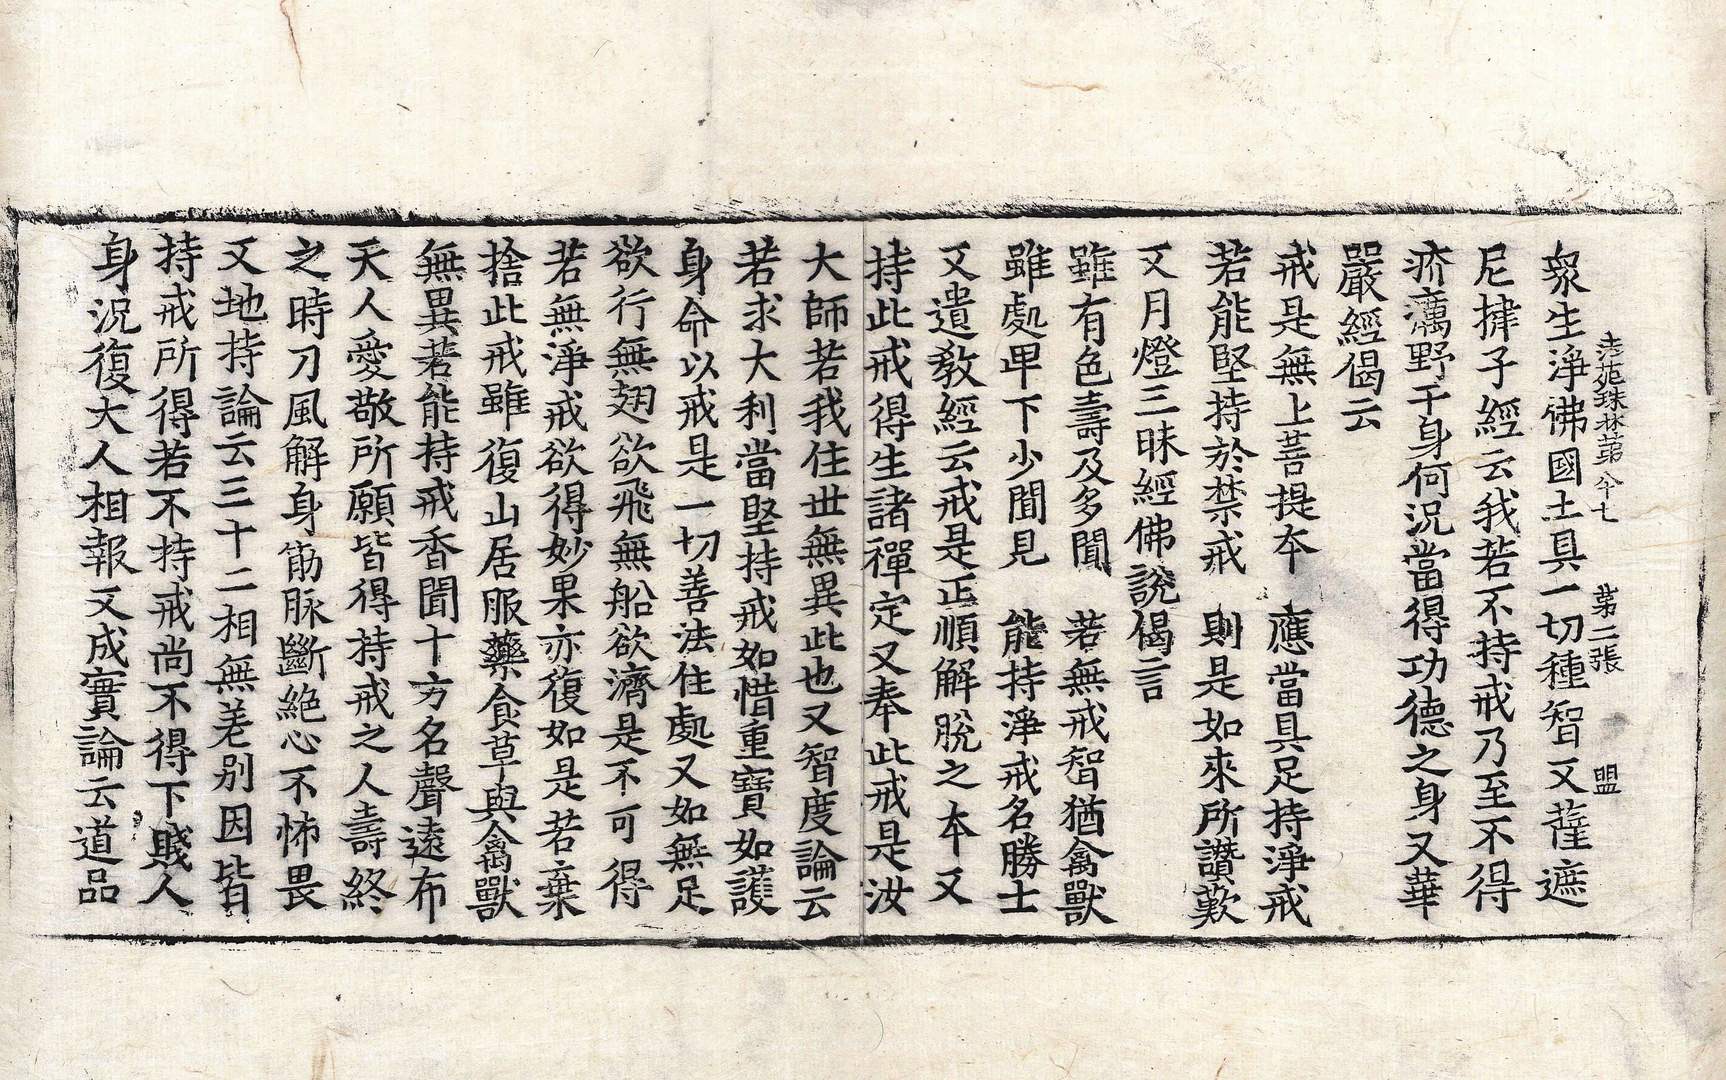 法苑珠林第八十七 第二張 盟
衆生淨佛國土具一切種智又薩遮
尼揵子經云我若不持戒乃至不得
疥癘野干身何況當得功德之身又華
嚴經偈云
戒是無上菩提夲 應當具足持淨戒
若能堅持於禁戒 則是如來所讃歎
又月燈三昧經佛說偈言
雖有色壽及多聞 若無戒智猶禽獸
雖處卑下少聞見 能持淨戒名勝士
又遺教經云戒是正順解脫之夲又
持此戒得生諸禪定又奉此戒是汝
大師若我住世無異此也又智度論云
若求大利當堅持戒如惜重寶如護
身命以戒是一切善法住處又如無足
欲行無翅欲飛無船欲濟是不可得
若無淨戒欲得妙果亦復如是若棄
捨此戒雖復山居服藥食草與禽獸
無異若能持戒香聞十方名聲遠布
天人愛敬所願皆得持戒之人壽終
之時刀風解身筋脉斷絕心不怖畏
又地持論云三十二相無差别因皆
持戒所得若不持戒尚不得下賤人
身況復大人相報又成實論云道品